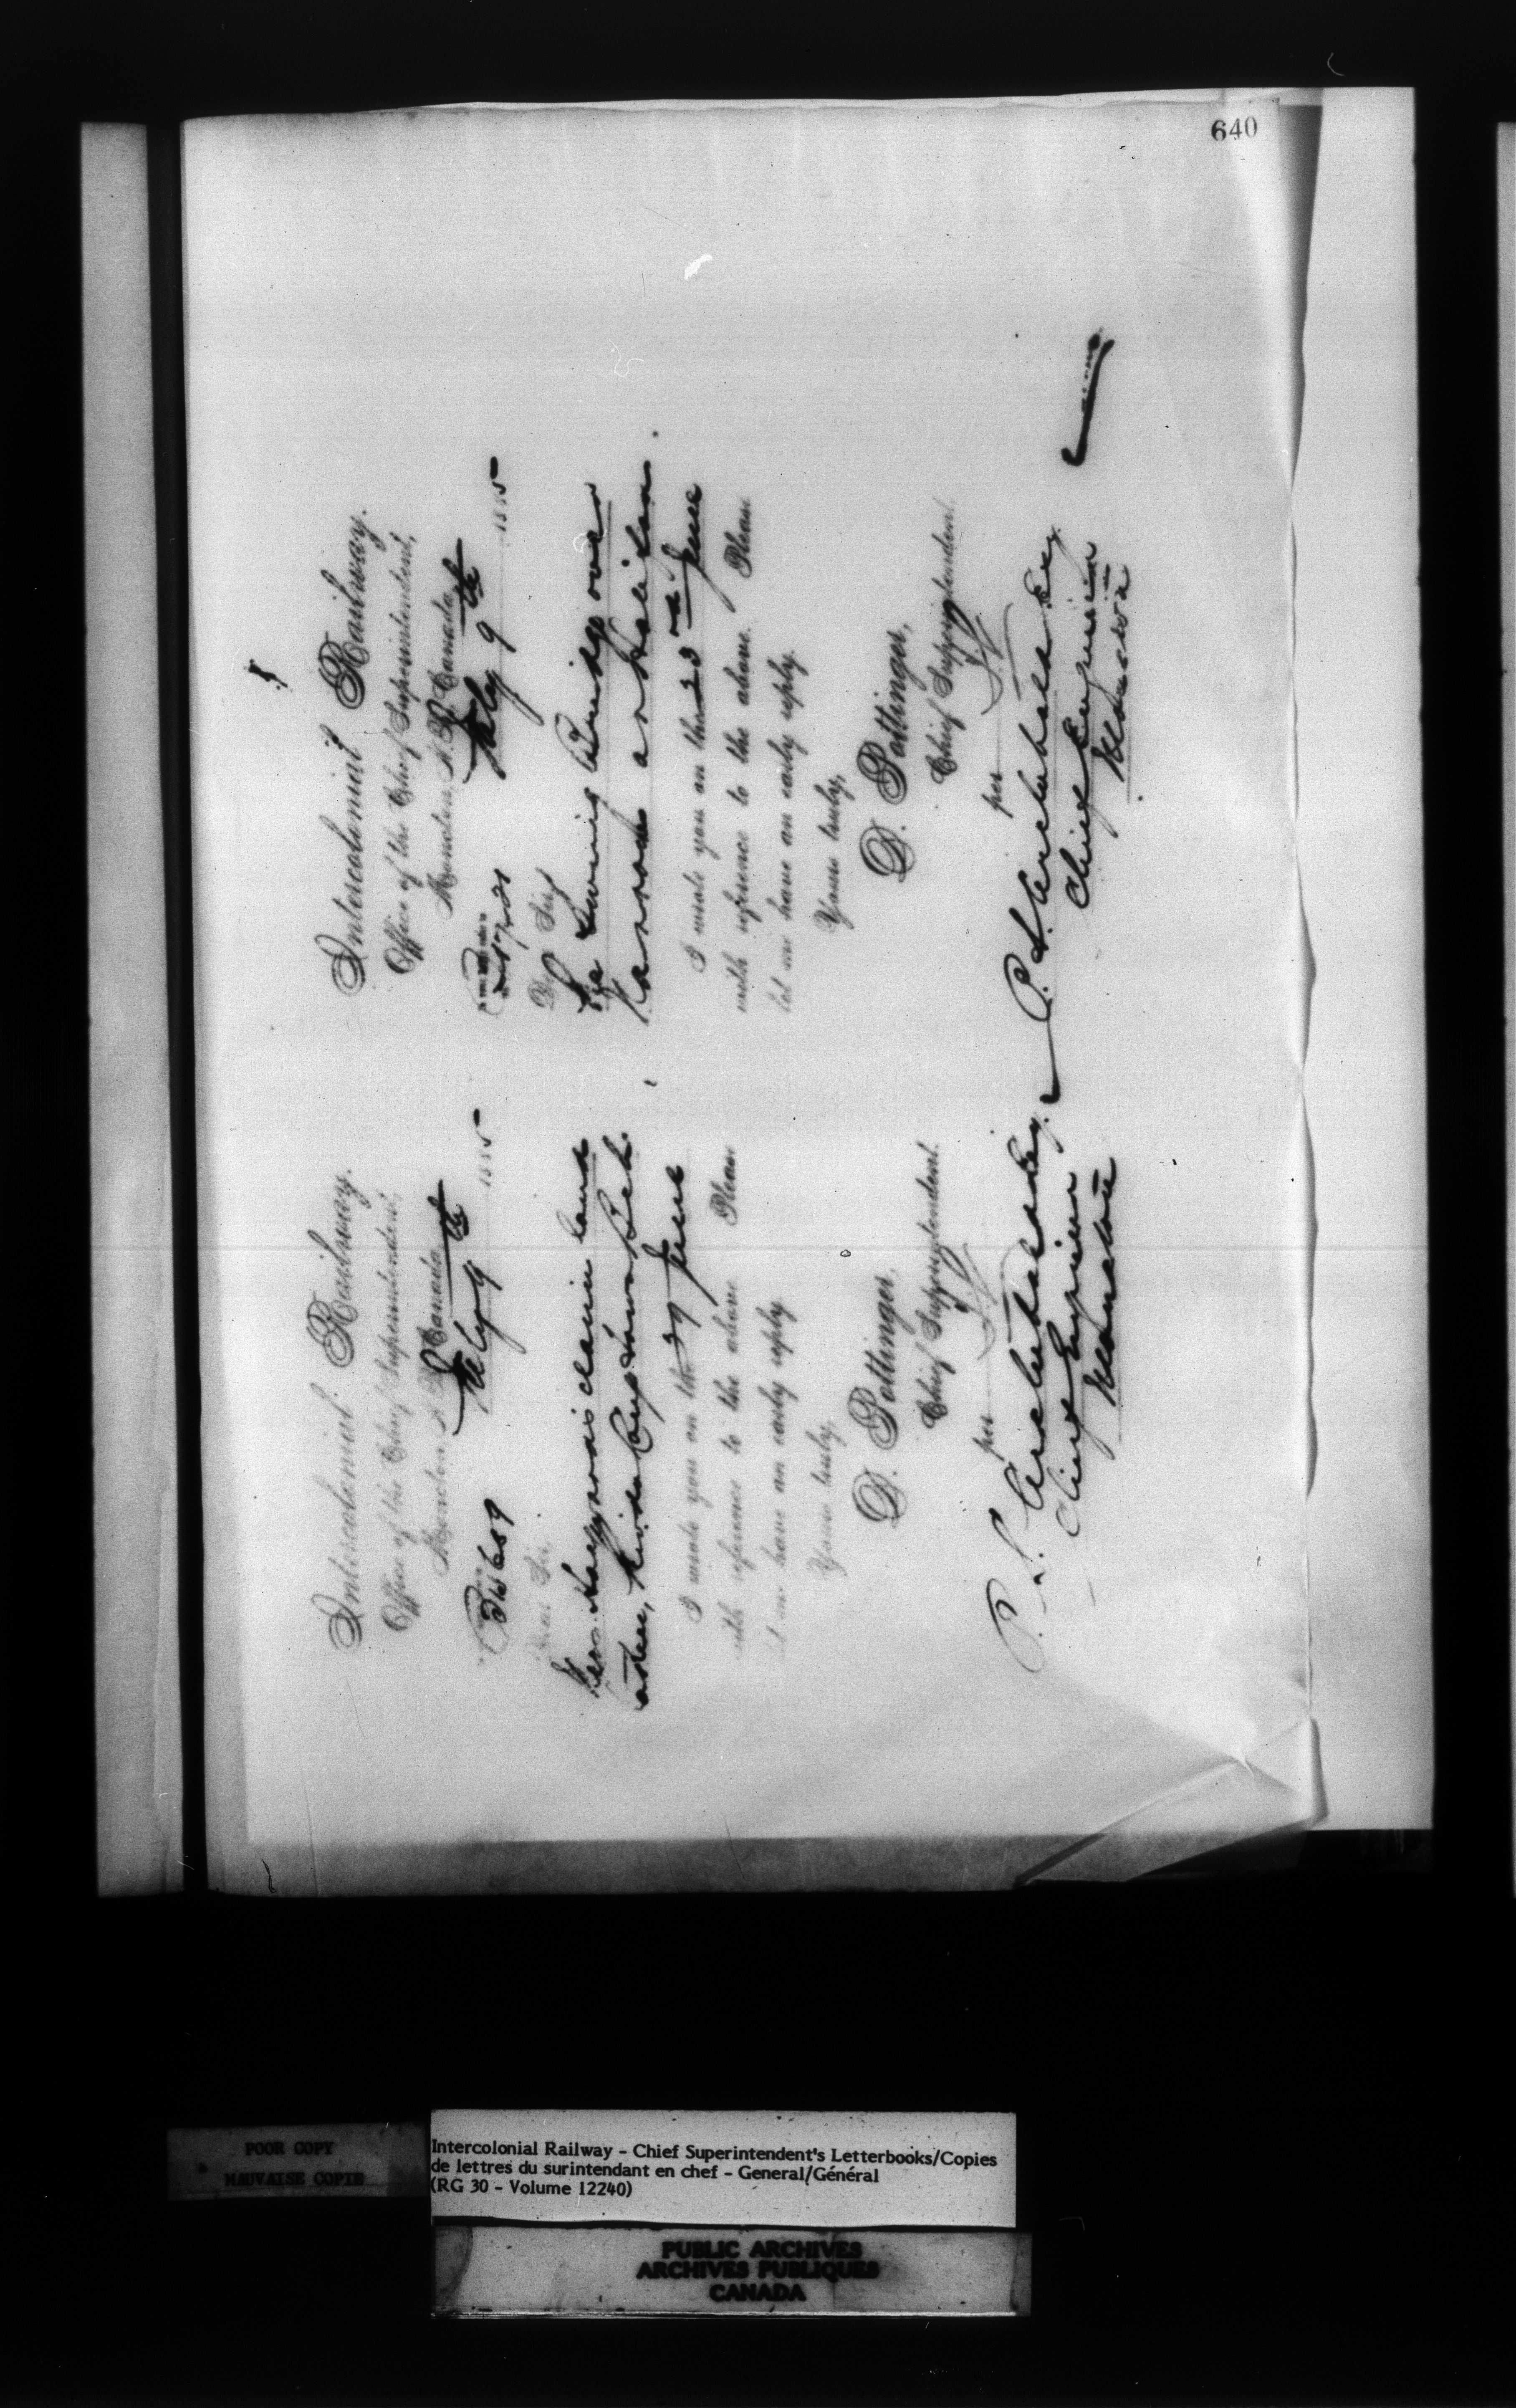 640
Intercolonial Railway.
Office of the Chief Superintendent,
Moncton, N.B. Canada
July 9th 1885
34689
Dear Sir,
claim land
I wrote you on the 29 June
with reference to the above Please
let me have an early reply.
Yours truly,
D. Pottinger,
Chief Superintendent.
per
P. S. Archibald Esq.
Chief Engineer
Moncton
Intercolonial Railway.
Office of the Chief Superintendent,
Moncton, N.B. Canada
July 9th 1885
Dear Sir
Swing Bridge over
Narrows at
I wrote you on the 23rd June
with reference to the above. Please
let me have an early reply.
Yours truly,
D. Pottinger,
Chief Superintendent.
per
P. S. Archibald Esq.
Chief Engineer
Moncton
POOR COPY
MAUVAISE COPIE
Intercolonial Railway - Chief Superintendent's Letterbooks/Copies
de lettres du surintendant en chef - General/Général
(RG 30 - Volume 12240)
PUBLIC ARCHIVES
ARCHIVES PUBLIQUES
CANADA